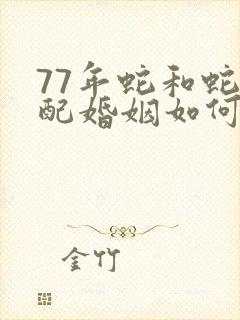 77年蛇和蛇
配婚姻如何
金竹